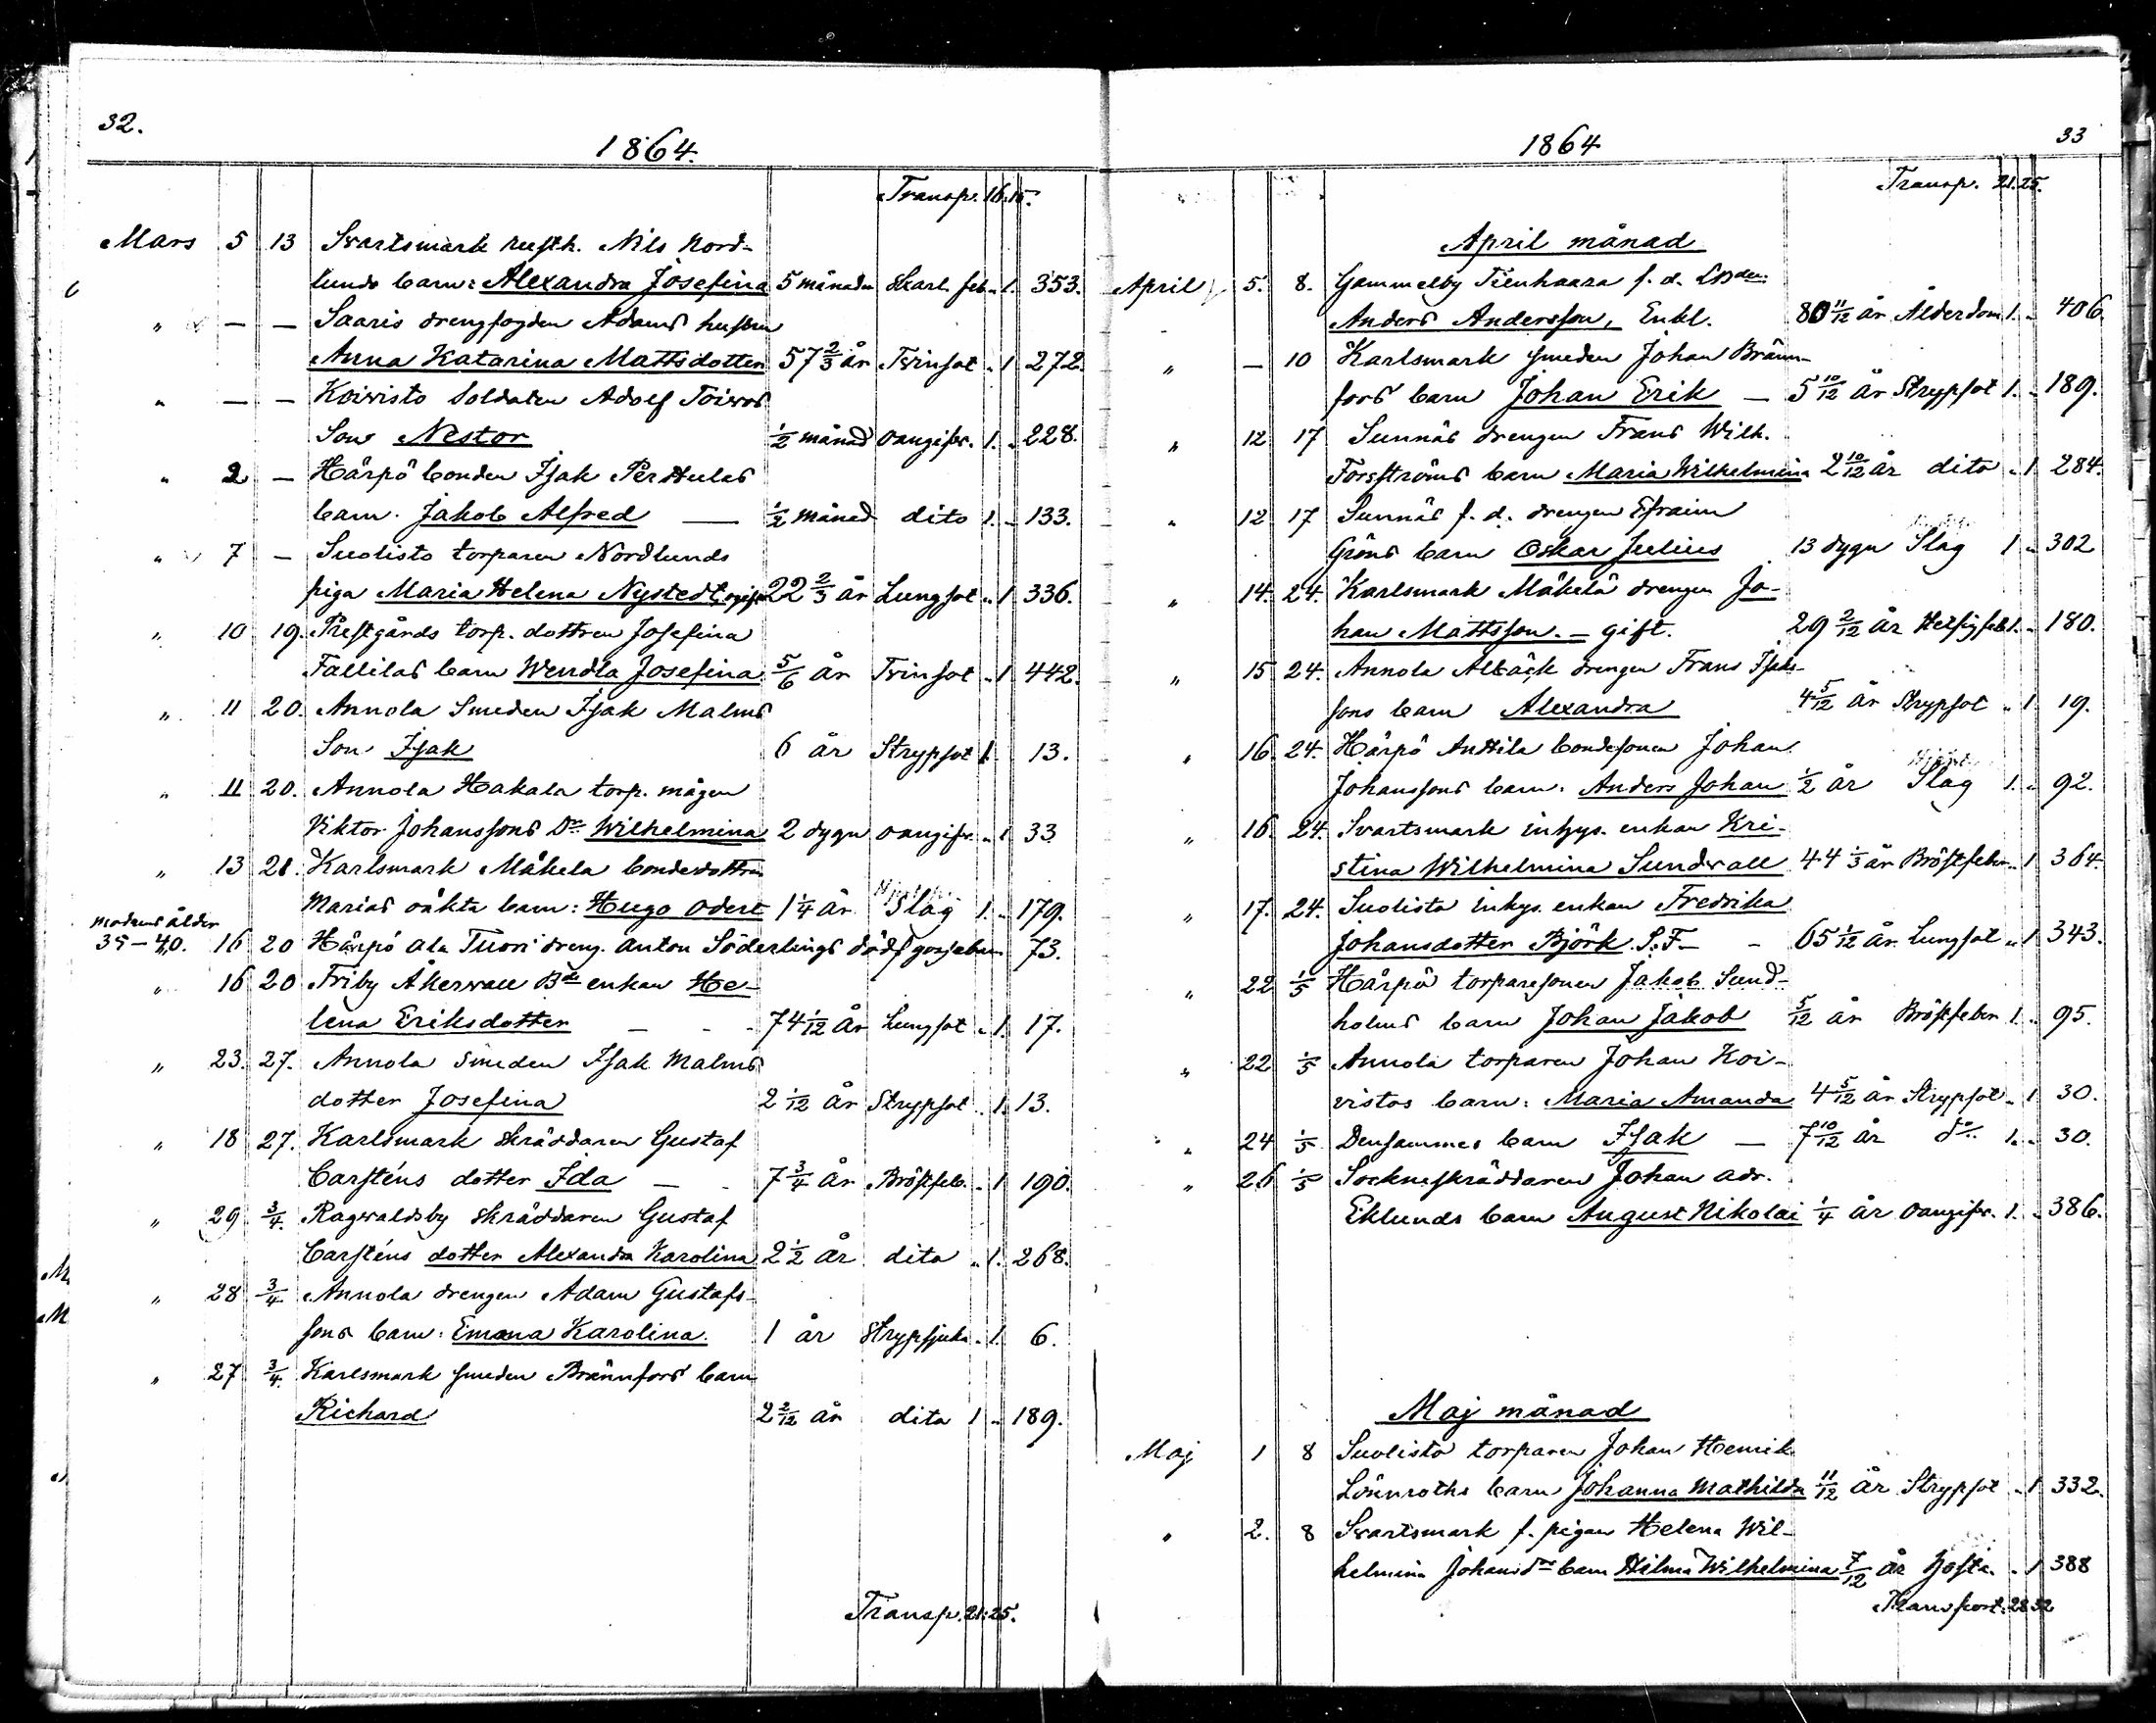 32.
1864.
Transp. 16. 15.
Mars 5 13 Svartsmark rusth. Nils Nord-
lunds barn: Alexandra Josefina 5 månader Skarl. feb. " 1. 353.
" — — Saaris drengfogden Adams hustru
Anna Katarina Mattsdotter 57 2/3 år Tvinsot " 1 272.
" — — Koivisto Soldaten Adolf Toivos
Son Nestor 1/2 månad oangifv. 1. " 228.
" 2 — Hårpö bonden Isak Perttulas
barn. Jakob Alfred — 1/2 månad dito 1. " 133.
" 7 — Suolisto torparen Nordlunds
piga Maria Helena Nystedt, ogift 22 2/3 år Lungsot " 1 336.
" 10 19. Prestgårds torp. dottren Josefina
Fallilas barn Wendla Josefina 5/6 år Tvinsot " 1 442.
" 11 20. Annola Smeden Isak Malms
Son Isak 6 år Strypsot 1. 13.
" 11 20. Annola Hakala torp. mågen
Viktor Johanssons Dr Wilhelmina 2 dygn oangifv. " 1 33
" 13 21. Karlsmark Mäkelä bondedottren
Marias oäkta barn: Hugo Odert 1 1/4 år Slag 1. " 179.
modrens ålder
35-40. 16 20 Hårpö Ala Tuori dreng. Anton Söderlings dödf gossebarn 73.
" 16 20 Friby Åkerwall Bde enkan He-
lena Eriksdotter — - - 74 1/12 år Lungsot " 1. 17.
" 23. 27. Annola Smeden Isak Malms
dotter Josefina 2 1/12 år Strypsot " 1. 13.
" 18 27. Karlsmark Skräddaren Gustaf
Carsténs dotter Ida — - 7 3/4 år Bröstfeb. " 1 190.
" 29 3/4. Ragwaldsby Skräddaren Gustaf
Carsténs dotter Alexandra Karolina 2 1/2 år dito " 1. 268.
" 28 3/4 Annola drengen Adam Gustafs-
sons barn: Emma Karolina. 1 år Strypsjuka " 1. 6.
" 27 3/4. Karlsmark smeden Brännfors barn
Richard 2 2/12 år dito 1 " 189.
Transp. 21. 25.
1864
33
Transp. 21. 25.
April månad
April 5. 8. Gammelby Tienhaara f. d.
Anders Andersson, Enkl. 80 11/12 år Ålderdom 1. " 406.
" — 10 Karlsmark smeden Johan Bränn-
fors barn Johan Erik — 5 10/12 år Strypsot 1. " 189.
" 12 17 Sunnäs drengen Frans Wilh.
Forsströms barn Maria Wilhelmina 2 10/12 år dito " 1 284.
" 12 17 Sunnäs f. d. drengen Efraim
Gröns barn Oskar Julius 13 dygn Slag 1 " 302
" 14. 24. Karlsmark Mäkelä drengen Jo-
han Mattsson. — gift. 29 2/12 år 1. " 180.
" 15 24. Annola Albäck drengen Frans Isaks-
sons barn Alexandra 4 5/12 år Strypsot " 1. 19.
" 16 24. Hårpö Anttila bondesonen Johan
Johanssons barn: Anders Johan 1/2 år Slag 1. " 92.
" 16 24. Svartsmark inhys. enkan Kri-
stina Wilhelmina Sundwall 44 1/3 år Bröstfeber " 1 364.
" 17. 24. Suolisto inhys. enkan Fredrika
Johansdotter Björk S. F. — - 65 1/12 år Lungsot " 1 343.
" 22 1/5 Hårpö torparesonen Jakob Sund-
holms barn Johan Jakob 5/12 år Bröstfeber 1. " 95.
" 22 1/5 Annola torparen Johan Koi-
vistos barn: Maria Amanda 4 5/12 år Strypsot " 1 30.
" 24 1/5 Densammes barn Isak — 7 10/12 år do 1. " 30.
" 26 1/5 Sockneskräddaren Johan Adr.
Eklunds barn August Nikolai 1/4 år oangifv. 1. " 386.
Maj månad
Maj 1 8 Suolisto torparen Johan Henrik
Lönnroths barn Johanna Mathilda 11/12 år Strypsot " 1 332.
" 2. 8 Svartsmark f. pigan Helena Wil-
helmina Johansdr barn Hilma Wilhelmina 7/12 år Hosta. " 1 388
Transport: 28 32